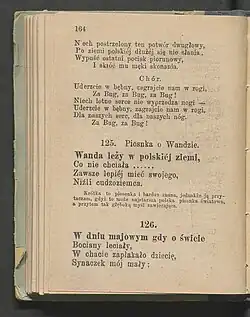 164
Niech postrzelony ten potwór dwugłowy,
Po ziemi polskiéj dłużéj się nie słania,
Wypuść ostatni pocisk piorunowy,
I skróć mu męki skonania.
Chór.
Uderzcie w bębny, zagrajcie nam w rogi,
Za Bug, za Bug, za Bug!
Niech lotne serce nie wyprzedza nogi —
Uderzcie w bębny, zagrajcie nam w rogi,
Dla naszych serc, dla naszych nóg.
Za Bug, za Bug!
125. Piosnka o Wandzie.
Wanda leży w polskiéj ziemi,
Co nie chciała ......
Zawsze lepiéj mieć swojego,
Niźli cudzoziemca.
Krótka to piosnka i bardzo znana, jednakże ją przy-
taczam, gdyż to może najstarsza polska piosnka światowa,
a przytem tak głęboką myśl zawierająca.
126.
W dniu majowym gdy o świcie
Bociany leciały,
W chacie zapłakało dziecię,
Synaczek mój mały;